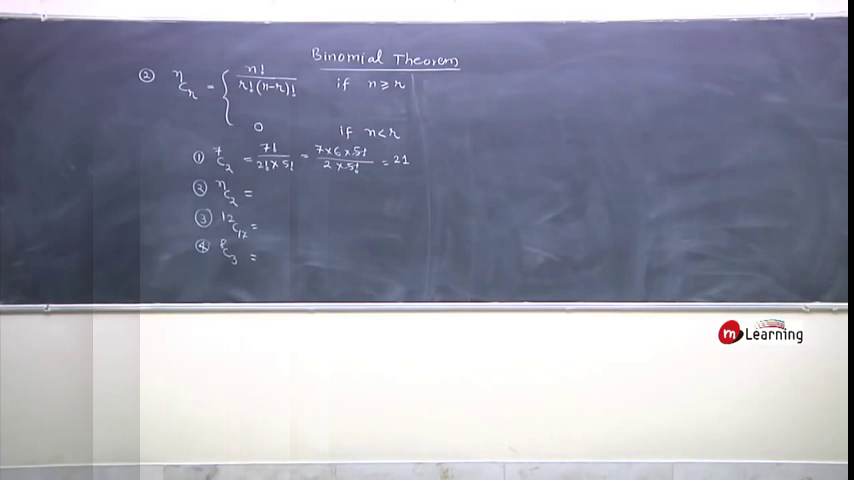 Binomial Theorem
② ⁿCᵣ = { n! / r!(n-r)! if n ≥ r
0 if n < r
① ⁷C₂ = 7! / 2! × 5! = 7×6×5! / 2×5! = 21
② ⁿC₂ =
③ ¹²C₁₇ =
④ ⁸C₃ =
m Learning